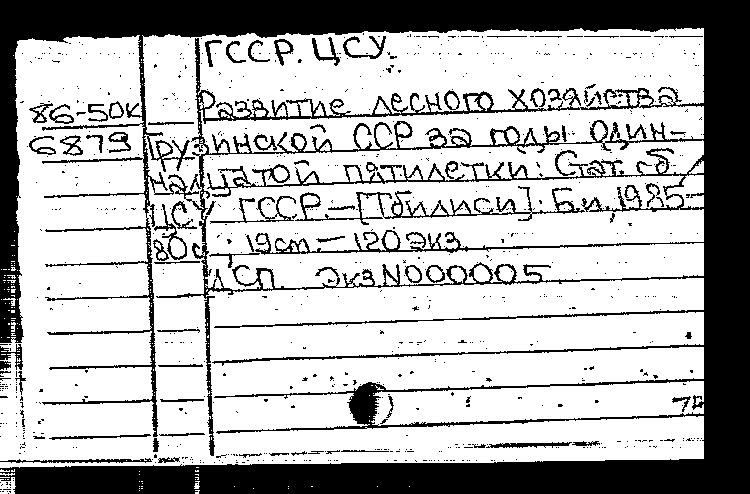 ГССР. ЦСУ.
86-50к Развитие лесного хозяйства
6879 Грузинской ССР за годы один-
надцатой пятилетки: Стат. сб /
ЦСУ ГССР.—[Тбилиси]: Б.и., 1985—
80с.; 19см.—120экз.
ДСП. Экз N000005